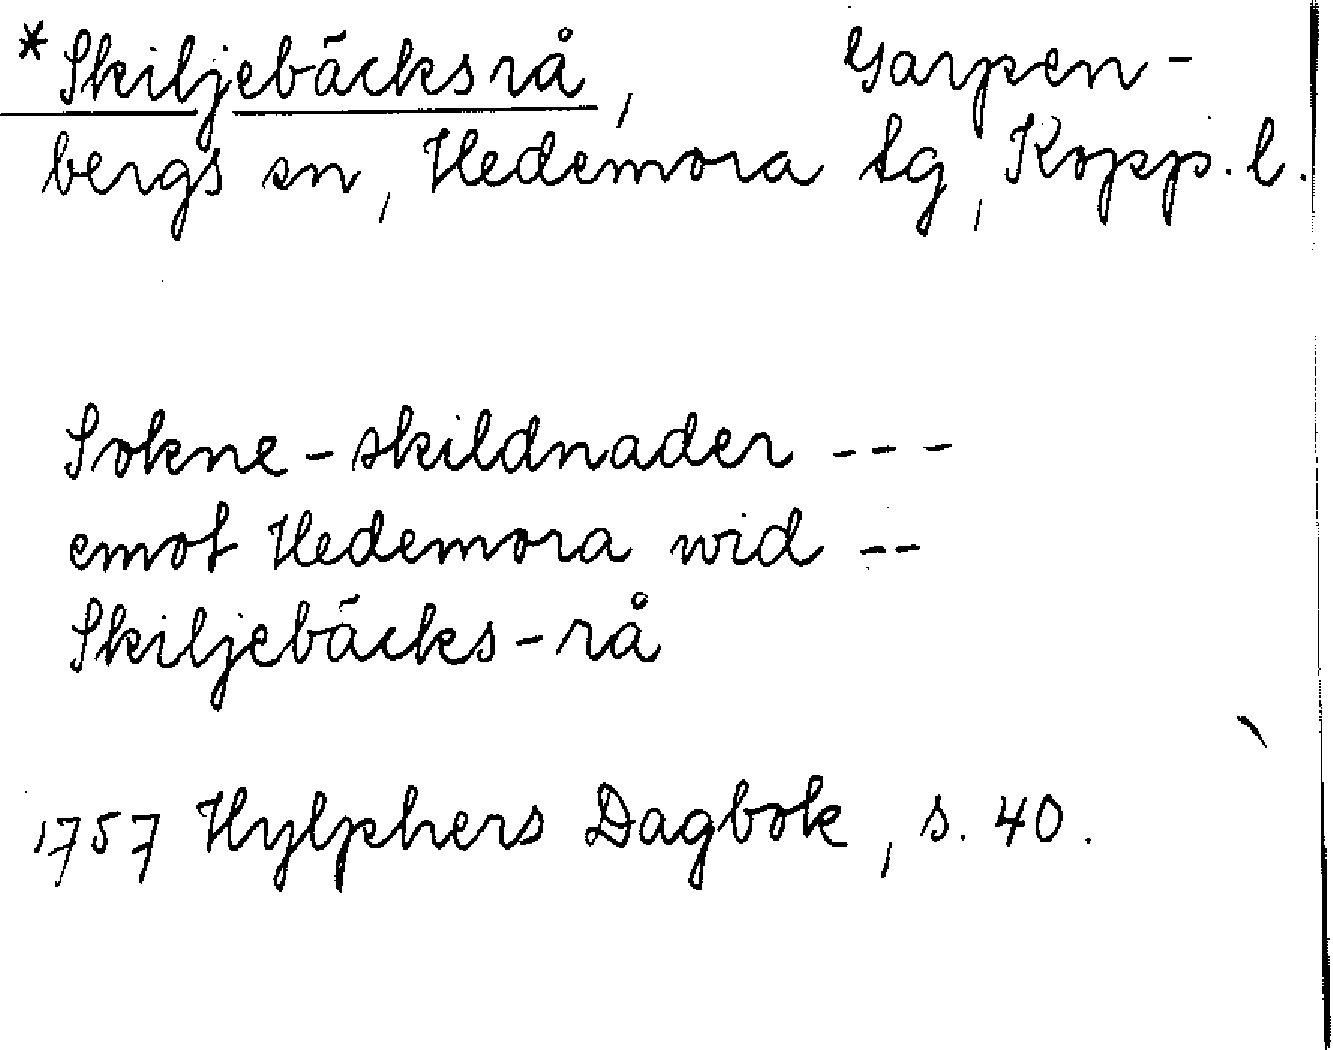 *Skiljebäcksrå, Garpen-
bergs sn, Hedemora tg, Kopp. l.
Sokne-skildnader ---
emot Hedemora wid --
Skiljebäcks-rå
1757 Hylphers Dagbok, s. 40.